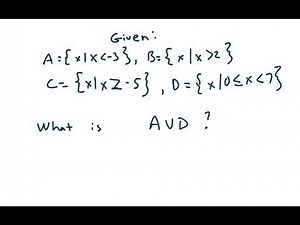 Given:
A={x|x<-3}, B={x|x>2}
C={x|x≥-5}, D={x|0≤x<7}
What is A∪D?